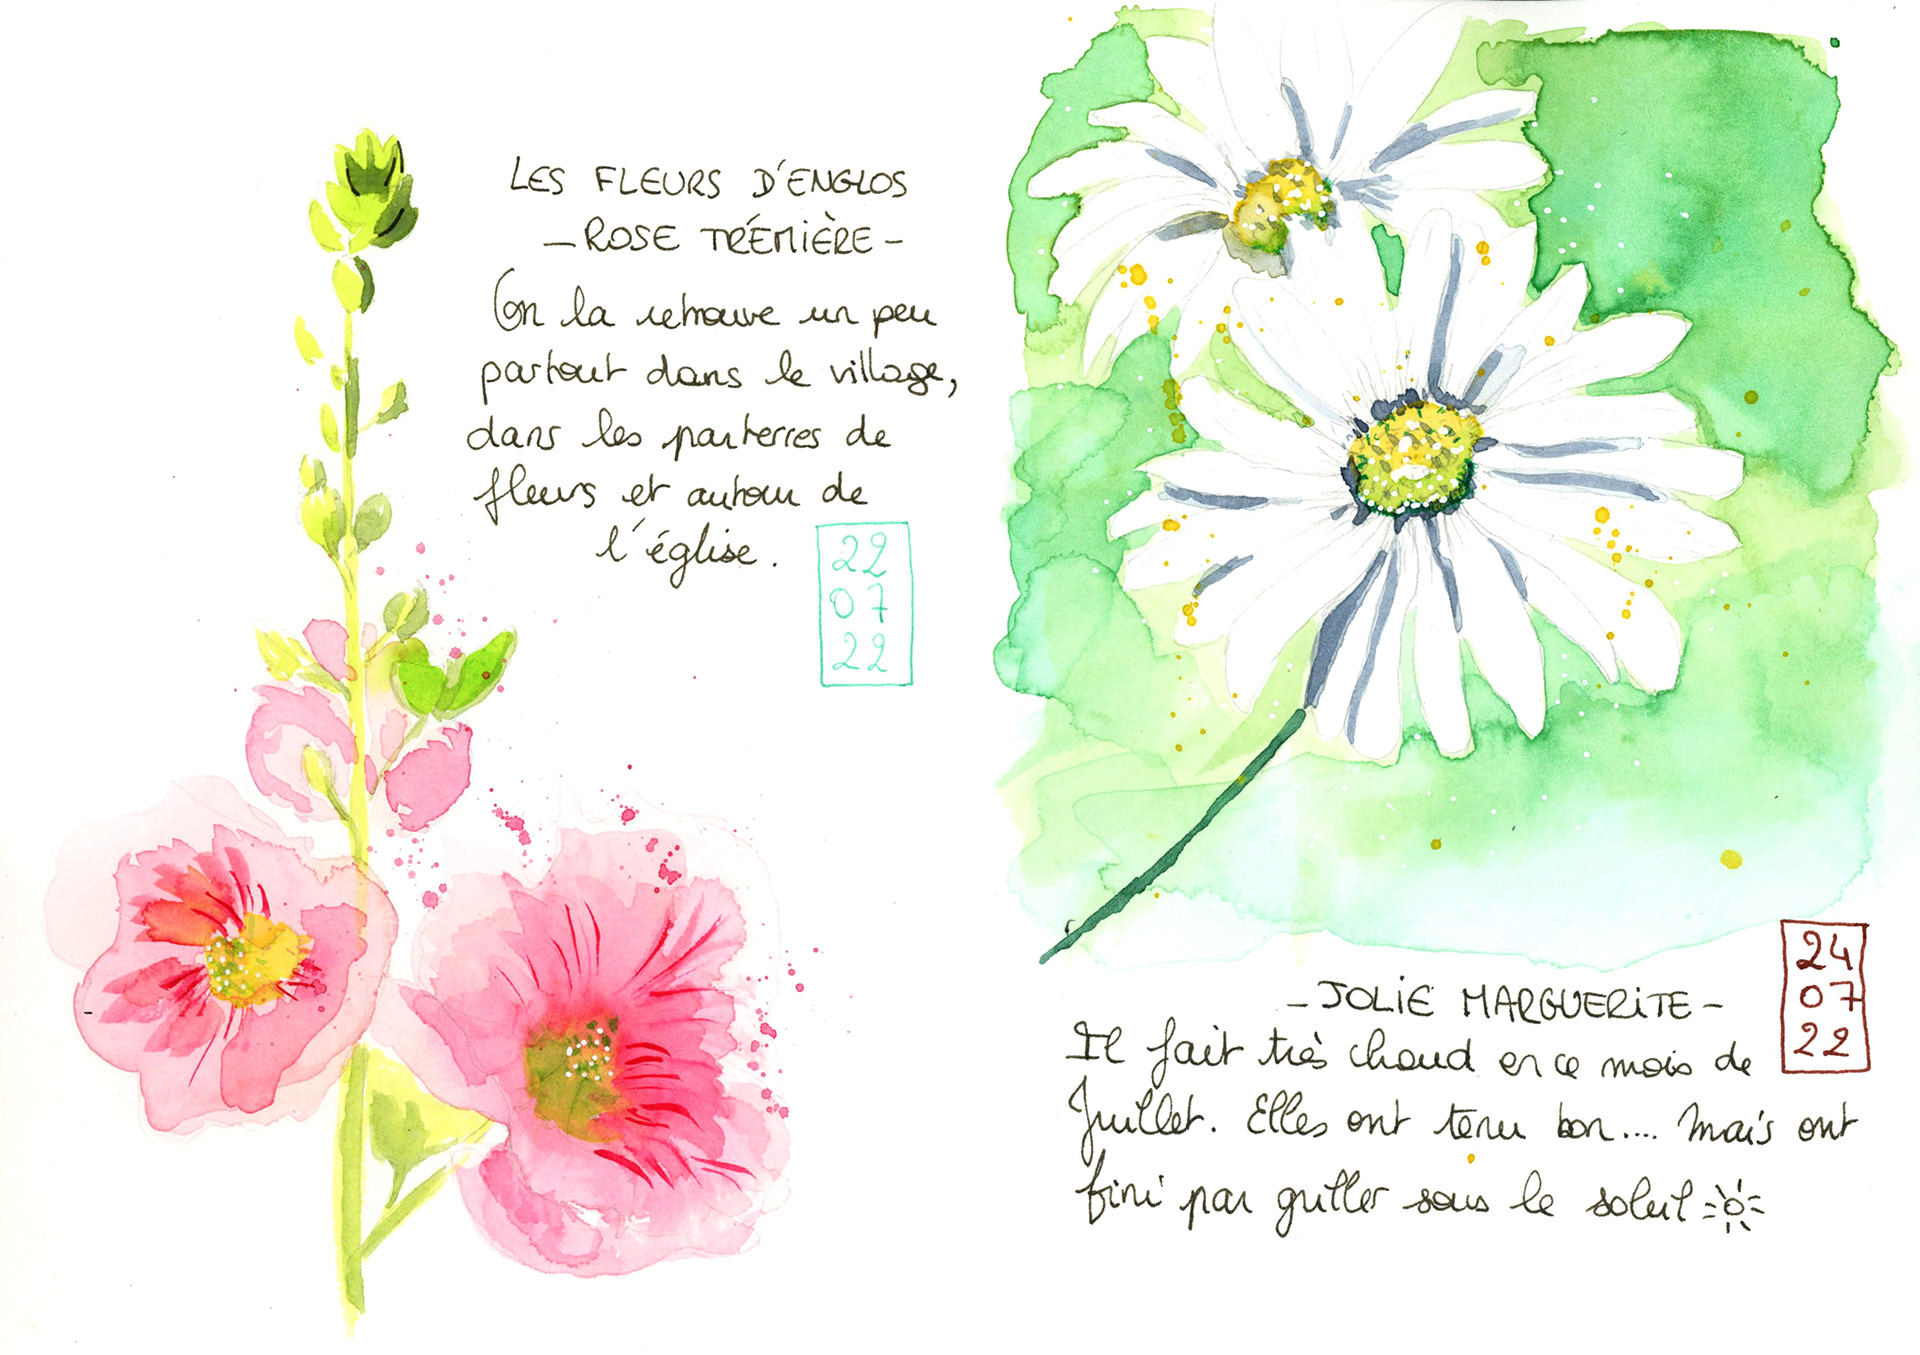 LES FLEURS D'ENGLOS
- ROSE TRÉMIÈRE -
On la retrouve un peu
partout dans le village,
dans les parterres de
fleurs et autour de
l'église.
22
07
22
24
07
22
- JOLIE MARGUERITE -
Il fait très chaud en ce mois de
Juillet. Elles ont tenu bon.... Mais ont
fini par griller sous le soleil